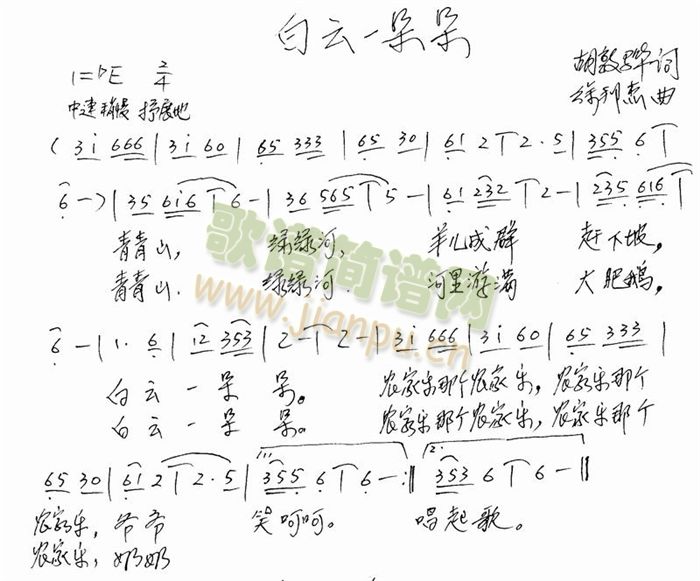 白云一朵朵
1=♭E 2/4
词
曲
中速稍慢 抒展地
( 3i 666 | 3i 60 | 65 333 | 65 30 | 61 2 | 2·5 | 355 6 |
6 -) | 35 6i6 | 6 - | 36 565 | 5 - | 61 232 | 2 - | 235 616 |
青青山, 绿绿河, 羊儿成群 赶下坡,
青青山. 绿绿河 河里游满 大肥鹅,
歌谱简谱网
www.jianpu.cn
6 - | 1· 6 | i2 353 | 2 - | 2 - | 3i 666 | 3i 60 | 65 333 |
白云一朵朵。 农家乐那个农家乐, 农家乐那个
白云一朵朵。 农家乐那个农家乐, 农家乐那个
65 30 | 61 2 | 2·5 | 355 6 | 6 - :‖ 353 6 | 6 - ‖
农家乐, 爷爷 笑呵呵。 唱起歌。
农家乐, 奶奶